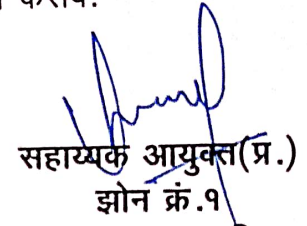 करावे.
सहाय्यक आयुक्त(प्र.)
झोन क्रं.१